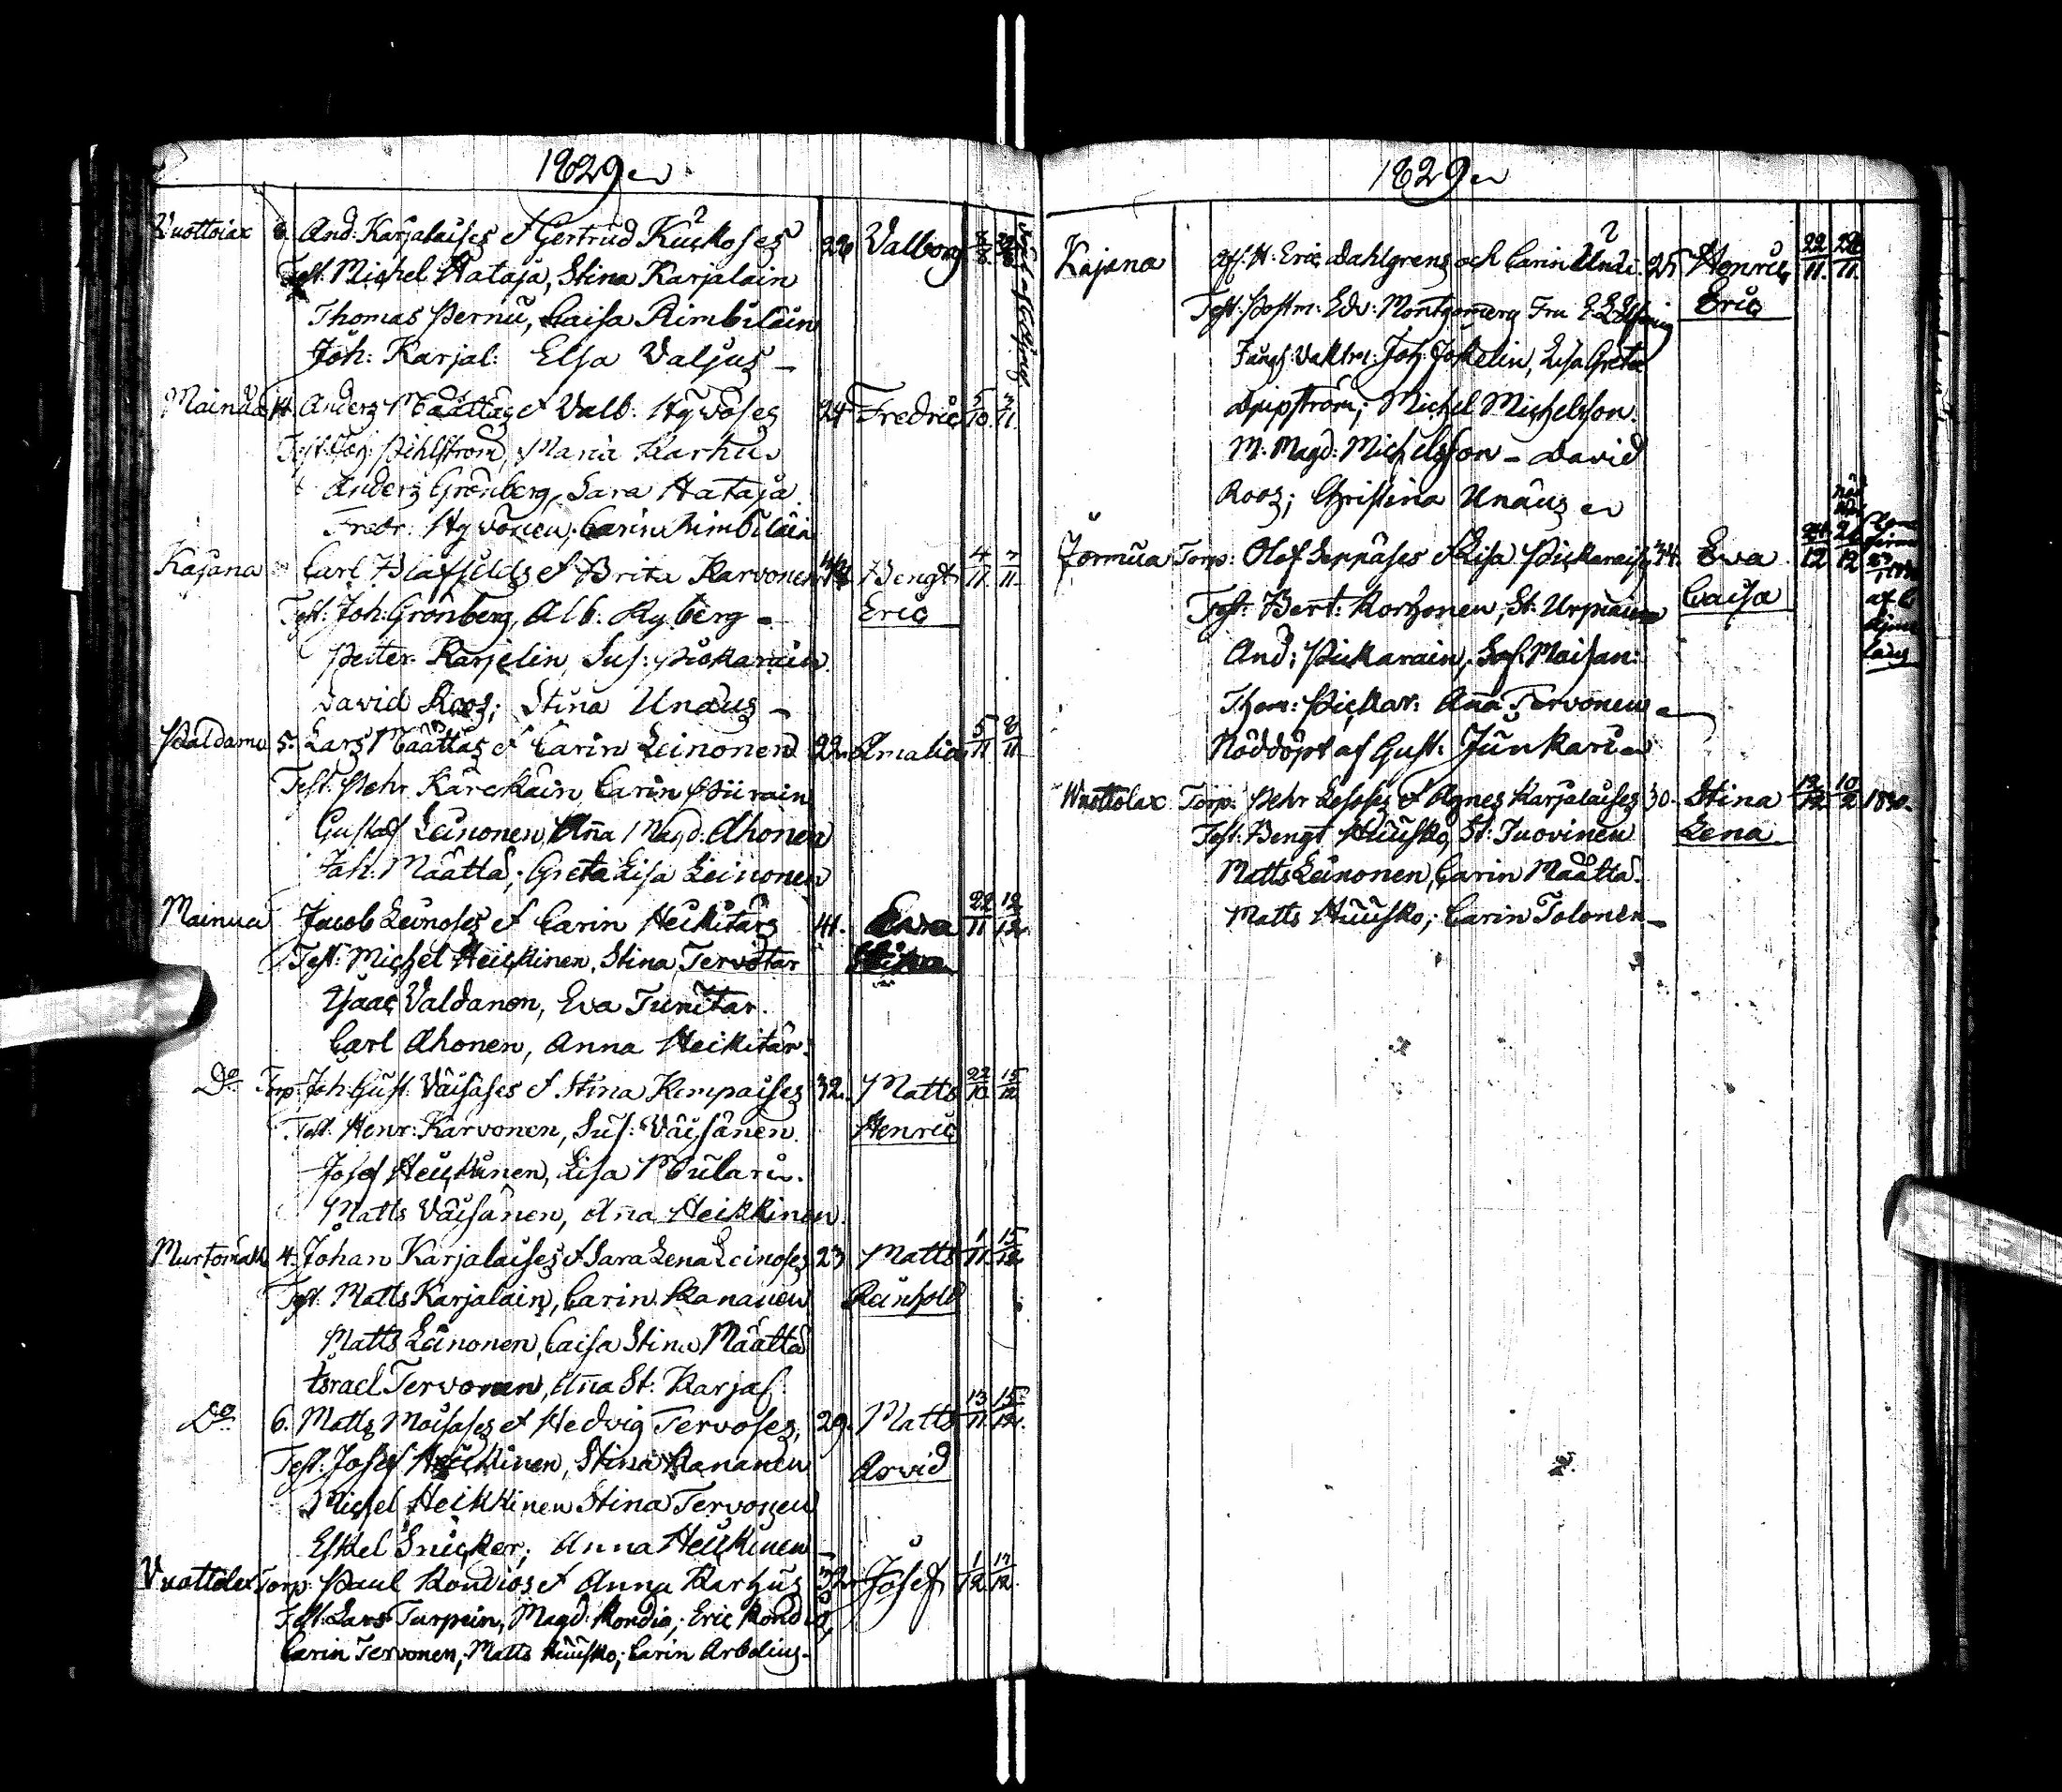 1829
Vuottolax 8. And: Karjalaises & Gertrud Kuckoses 26 Valborg 8/8
Test. Michel Hataja, Stina Karjalain
Thomas Pernu, Caisa Rimbiläin
Joh: Karjal: Elsa Valjus
Mainua 14 Anders Määttäs & Valb: Hyvöses 24 Fredric 5/10 3/11
Test. Joh: Pihlström, Maria Karhu
Anders Grönberg, Sara Hataja
Fredr: Hyvönen, Carin Rimbiläin
Kajana Carl & Brita Karvonen Bengt 4/11 7/11
Test. Joh: Grönberg, Alb: Ryberg Eric
Petter Karjelin, Sus: Pickarain
David Roos; Stina Unaeus
Paldamo 5. Lars Määttäs & Carin Leinonen 22 Amalia 5/11 8/11
Test. Pehr Kärckäin Carin Piirain
Gustaf Leinonen, Anna Magd. Ahonen
Joh. Määttä; Greta Lisa Leinonen
Mainua Jacob Leinoses & Carin Heikitärs 41. 22/11 12/12
Test: Michel Heickinen, Stina Tervotar
Ysaac Valdanen, Eva Tunitar.
Carl Ahonen, Anna Heikitär.
Do Torp. Joh: Gust: Väisäses & Stina Kempaises 32. Matts 22/10 15/12
Test. Henr: Karvonen, Sus: Väisänen. Henric
Josef Heickinen, Lisa Mulari.
Matts Väisänen, Anna Heikkinen.
Murtomäki 4. Johan Karjalaises & Sara Lena Leinoses 23 Matts 1/11 15/12
Test. Matts Karjalain, Carin Kananen Reinhold
Matts Leinonen, Caisa Stina Määttä
Israel Tervonen, Anna St: Karjal:
Do 6. Matts Moisases & Hedvig Tervoses, 29. Matts 13/11 15/12
Test: Josef Heickinen, Stina Kananen Arvid
Michel Heikkinen Stina Tervonen
Eskel Snicker; Anna Heickinen
Vuottolax Torp: Paul Kondios & Anna Karhus 32 Josef 1/12 17/12
Test: Lars Turpein, Magd: Kondia; Eric Kondio,
Carin Tervonen, Matts Huusko; Carin Arbelius
1829
Kajana Eric Dahlgrens och Carin 25 Henric 22/11 28/11
Test: Postm: Edv: Montgomery Fru Eric
Joh: Joselin, Lisa Greta
Michel Michelsson.
M: Magd: Michelsson – David
Roos; Christina Unaeus
Jormua Torp: Olof Leppäses & Lisa Pickaraises 34. Eva 24/12 26/12
Test: Bert: Korhonen, St: Urpiain Caisa
And: Pickarain, Sof: Moisan:
Thom: Pickar: Anna Tervonen
Nöddöpt af Gust: Junkari
Wuottolax Torp: Pehr & Agnes Karjalaises 30. Stina 12/12 10/2 1830.
Test: Bengt Huusko, St: Juovinen Lena
Matts Leinonen, Carin Määttä.
Matts Huusko; Carin Tolonen